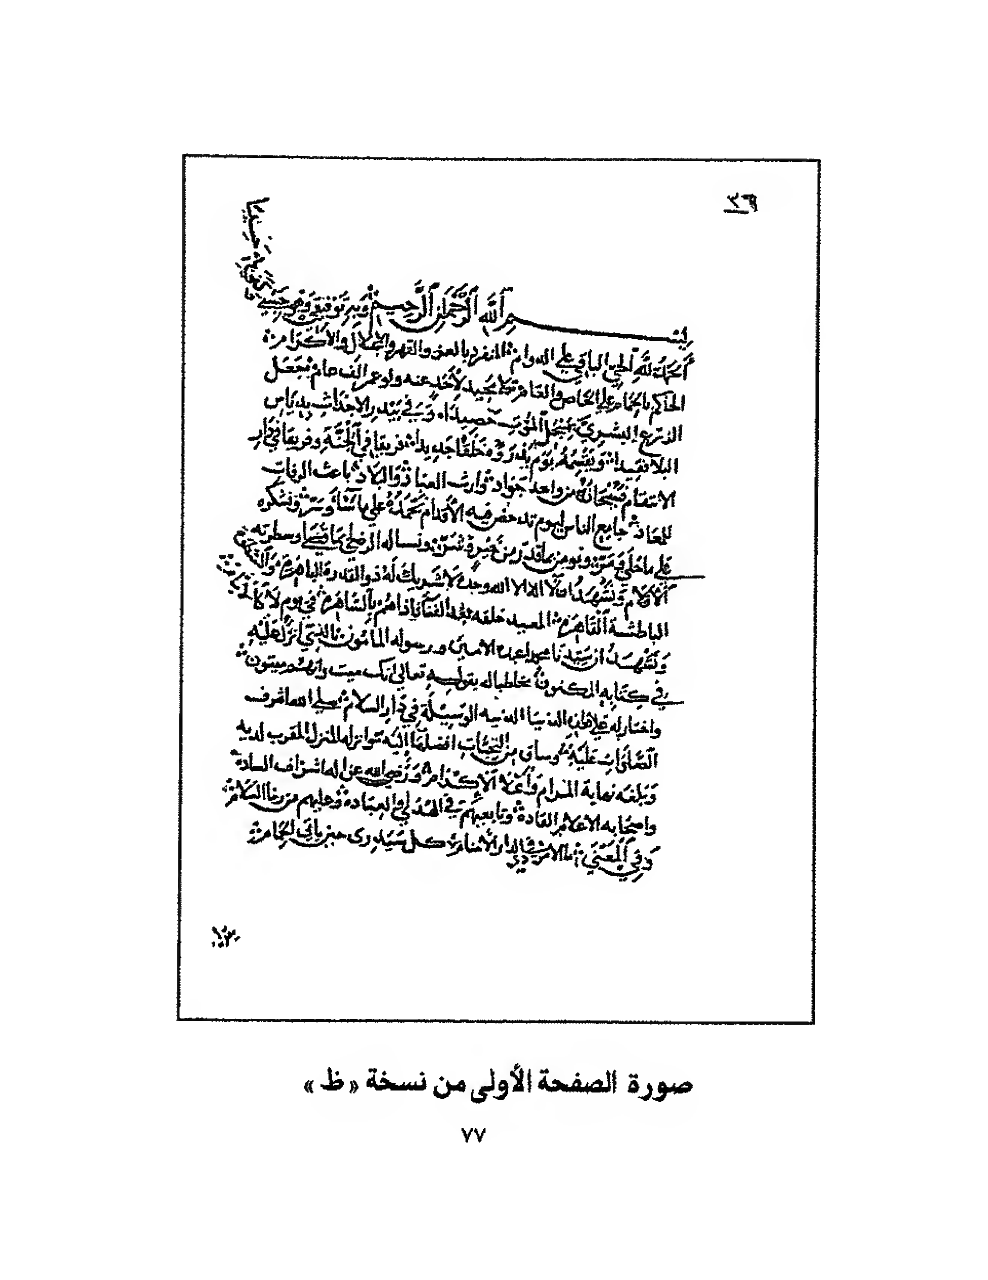 ٣٦٩
بسم الله الرحمن الرحيم وبه توفيقي وهو حسبي
الحمد لله الحي الباقي على الدوام المنفرد بالعز والقهر والجلال والاكرام
الحاكم بالحمام على الخاص والعام فلا يحيد لأحد عنه ولو عمر الف عام فجعل
الزرع البشري بمنجل الموت حصيدا وفي بيدر الاجداث بدياس
البلا ويقيمه يوم خلقا جديدا فريقا في الجنة وفريقا في دار
الانتقام فسبحانه من واحد جواد وارث العباد والبلاد باعث الرفات
للمعاد جامع الناس ليوم تدحض فيه الأقدام نحمده على ما سا وسر ونشكره
على ما حلى ومر ونومن بما قدر من خير وشر ونساله الرضى بما قضى وسطرته
الأقلام ونشهد ان لا اله الا الله وحده لا شريك له ذو القدرة الباهرة
الباطشة القاهرة المعيد خلقه بعد الفنا فاذا هم بالساهرة في يوم
ونشهد ان سيدنا محمدا عبده الامين ورسوله المامون الذي انزل عليه
في كتابه المكنون مخاطبا له بقوله تعالى انك ميت وانهم ميتون
واختار له على هذه الدنيا الدنيه الوسيلة في دار السلام صلى الله اشرف
الصلوات عليه وساق من التحيات افضلها اليه وانزله المنزل المقرب لديه
وبلغه نهاية المرام واعلا الاكرام ورضي الله عن اله اشراف السادة
واصحابه الاعلام القادة وتابعيهم في الهدى والعبادة وعليهم من ربنا السلام
وفي المعنى الامر في الدار كل سيدرى حين ياتي الحمام
صورة الصفحة الأولى من نسخة «ظ»
٧٧